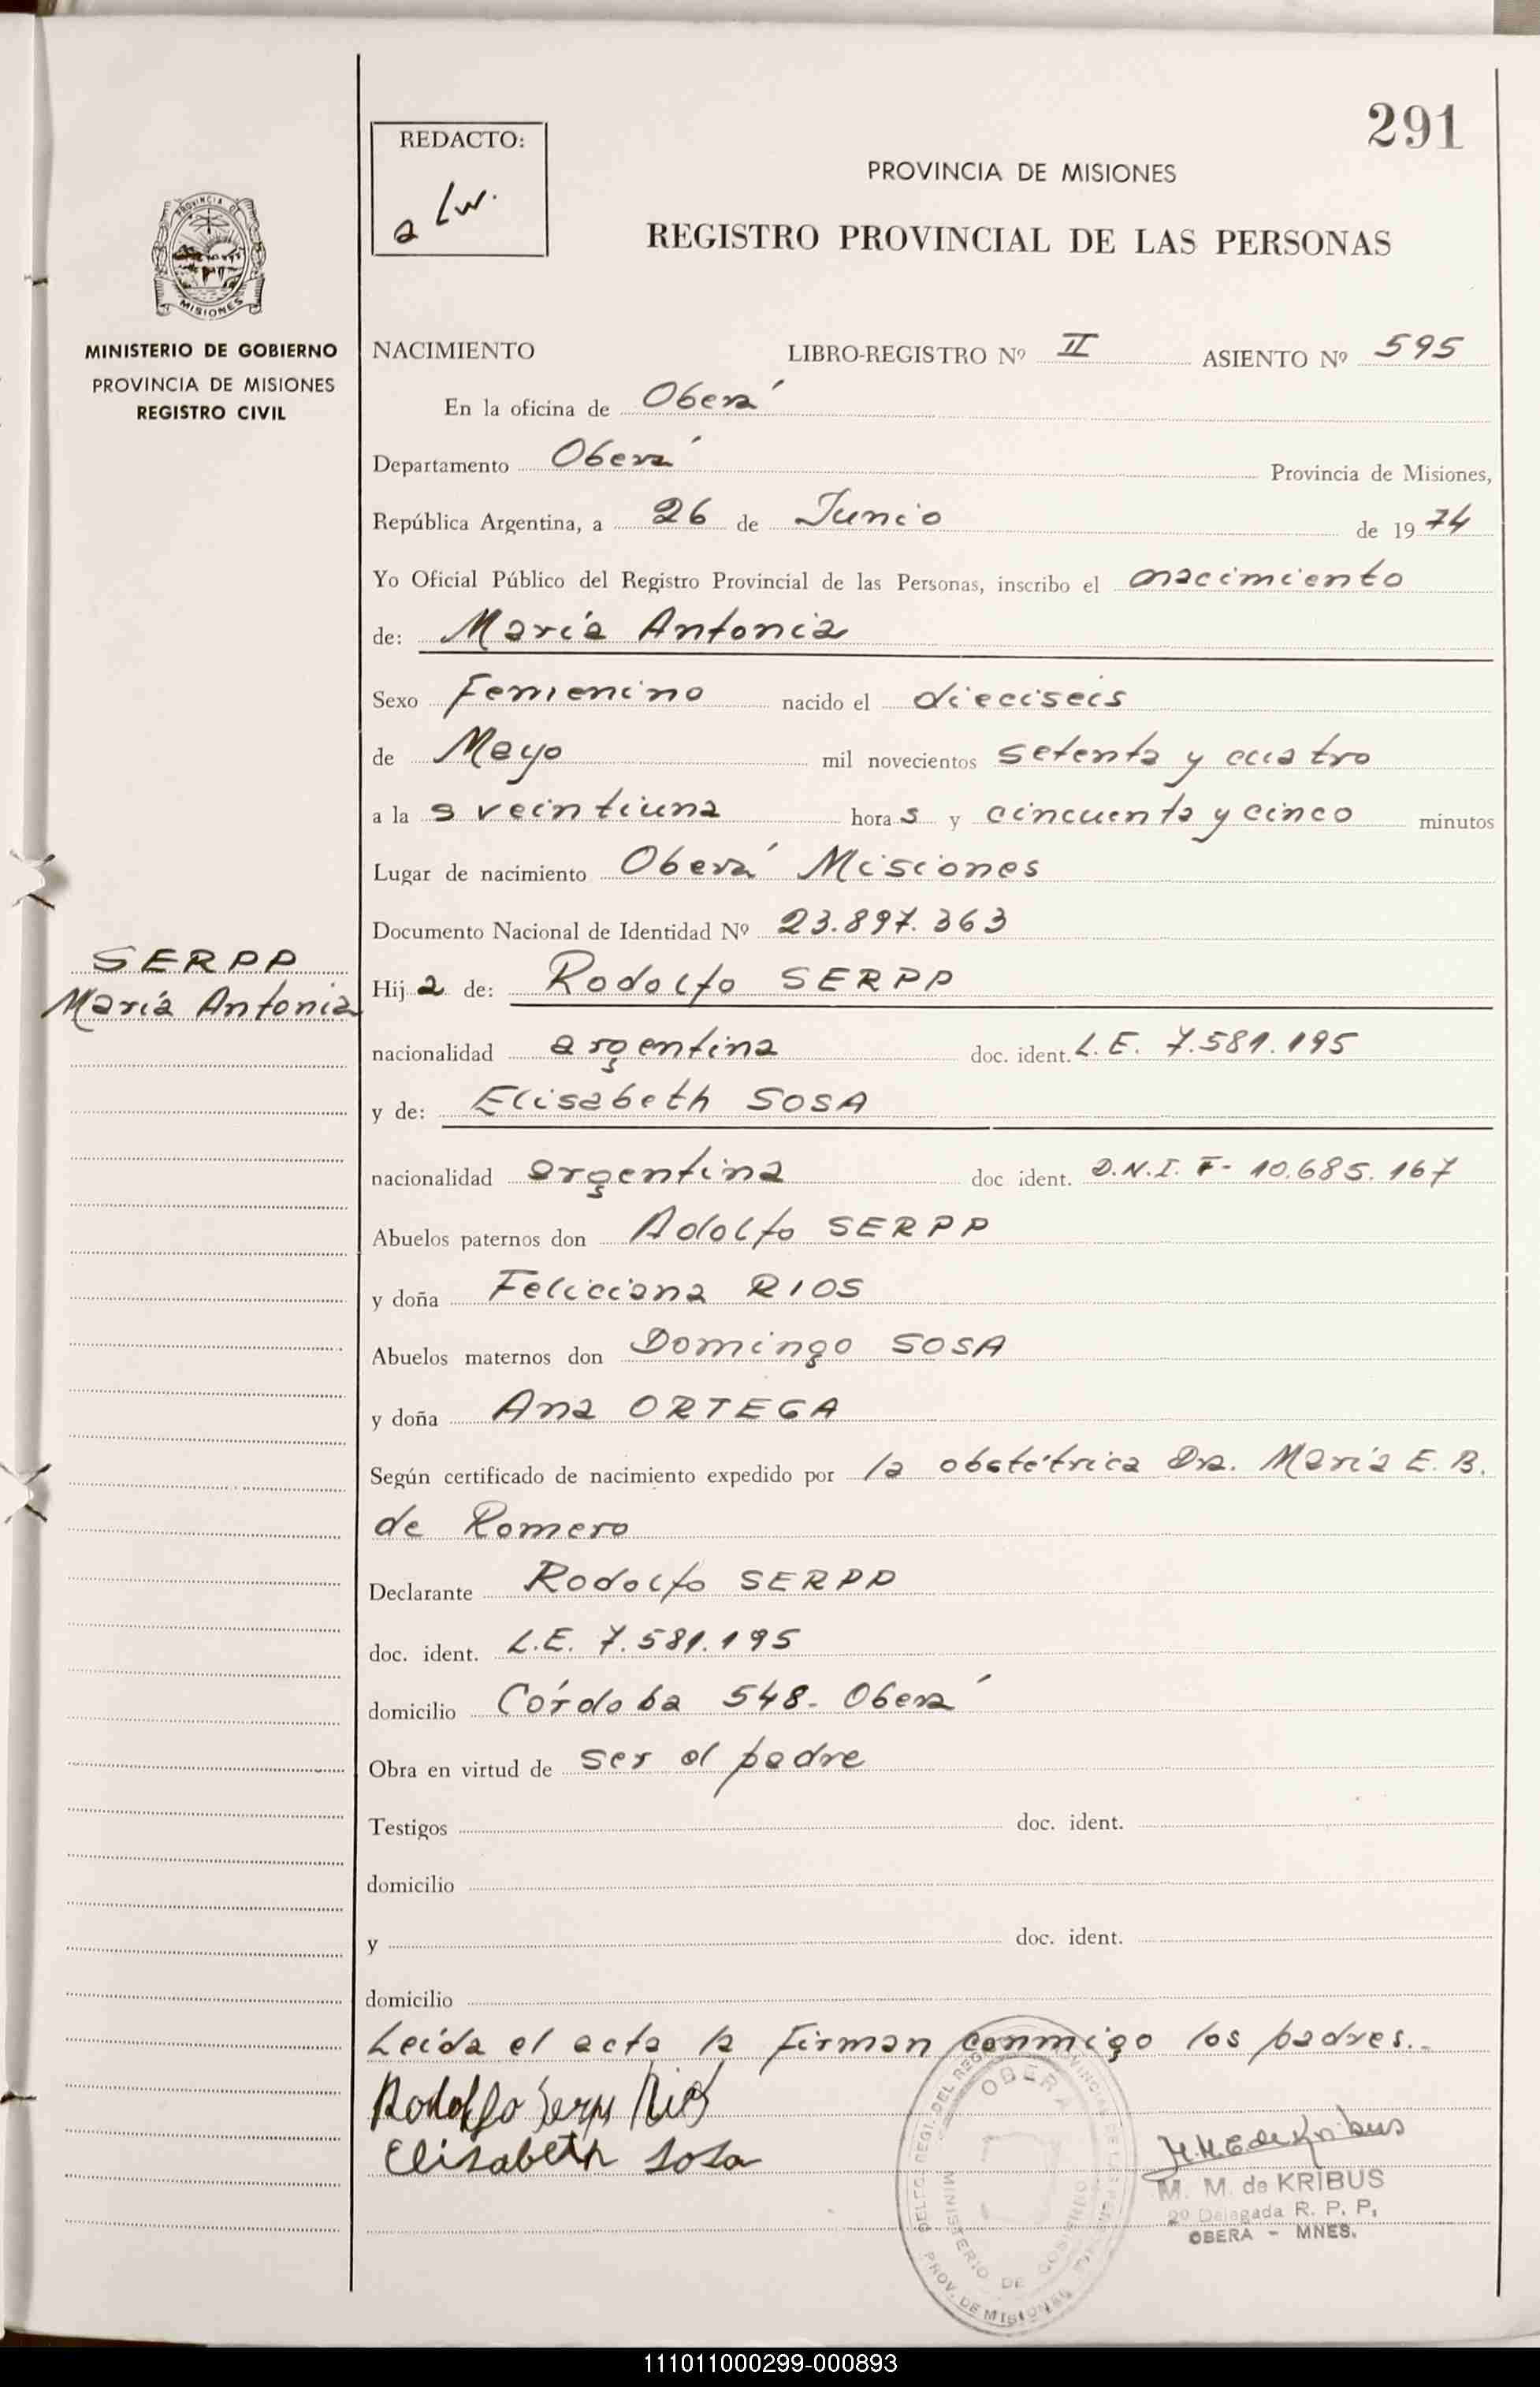 291
REDACTO:
a lw.
PROVINCIA DE MISIONES
REGISTRO PROVINCIAL DE LAS PERSONAS
PROVINCIA DE
MISIONES
MINISTERIO DE GOBIERNO
PROVINCIA DE MISIONES
REGISTRO CIVIL
NACIMIENTO LIBRO-REGISTRO Nº II ASIENTO Nº 595
En la oficina de Oberá
Departamento Oberá Provincia de Misiones,
República Argentina, a 26 de Junio de 1974
Yo Oficial Público del Registro Provincial de las Personas, inscribo el nacimiento
de: María Antonia
Sexo Femenino nacido el dieciseis
de Mayo mil novecientos setenta y cuatro
a la s veintiuna hora s y cincuenta y cinco minutos
Lugar de nacimiento Oberá Misiones
Documento Nacional de Identidad Nº 23.897.363
SERPP
María Antonia
Hija de: Rodolfo SERPP
nacionalidad argentina doc. ident. L.E. 7.581.195
y de: Elisabeth SOSA
nacionalidad argentina doc ident. D.N.I. F- 10.685.167
Abuelos paternos don Adolfo SERPP
y doña Feliciana RIOS
Abuelos maternos don Domingo SOSA
y doña Ana ORTEGA
Según certificado de nacimiento expedido por la obstétrica Dra. María E. B.
de Romero
Declarante Rodolfo SERPP
doc. ident. L.E. 7.581.195
domicilio Córdoba 548- Oberá
Obra en virtud de ser el padre
Testigos doc. ident.
domicilio
y doc. ident.
domicilio
Leída el acta la firman conmigo los padres.-
Rodolfo Serpp Rios
Elisabeth Sosa
OBERA
MINISTERIO DE GOBIERNO
PROV. DE MISIONES
M. M. de Kribus
M. M. de KRIBUS
2º Delegada R. P. P.
OBERA - MNES.
111011000299-000893